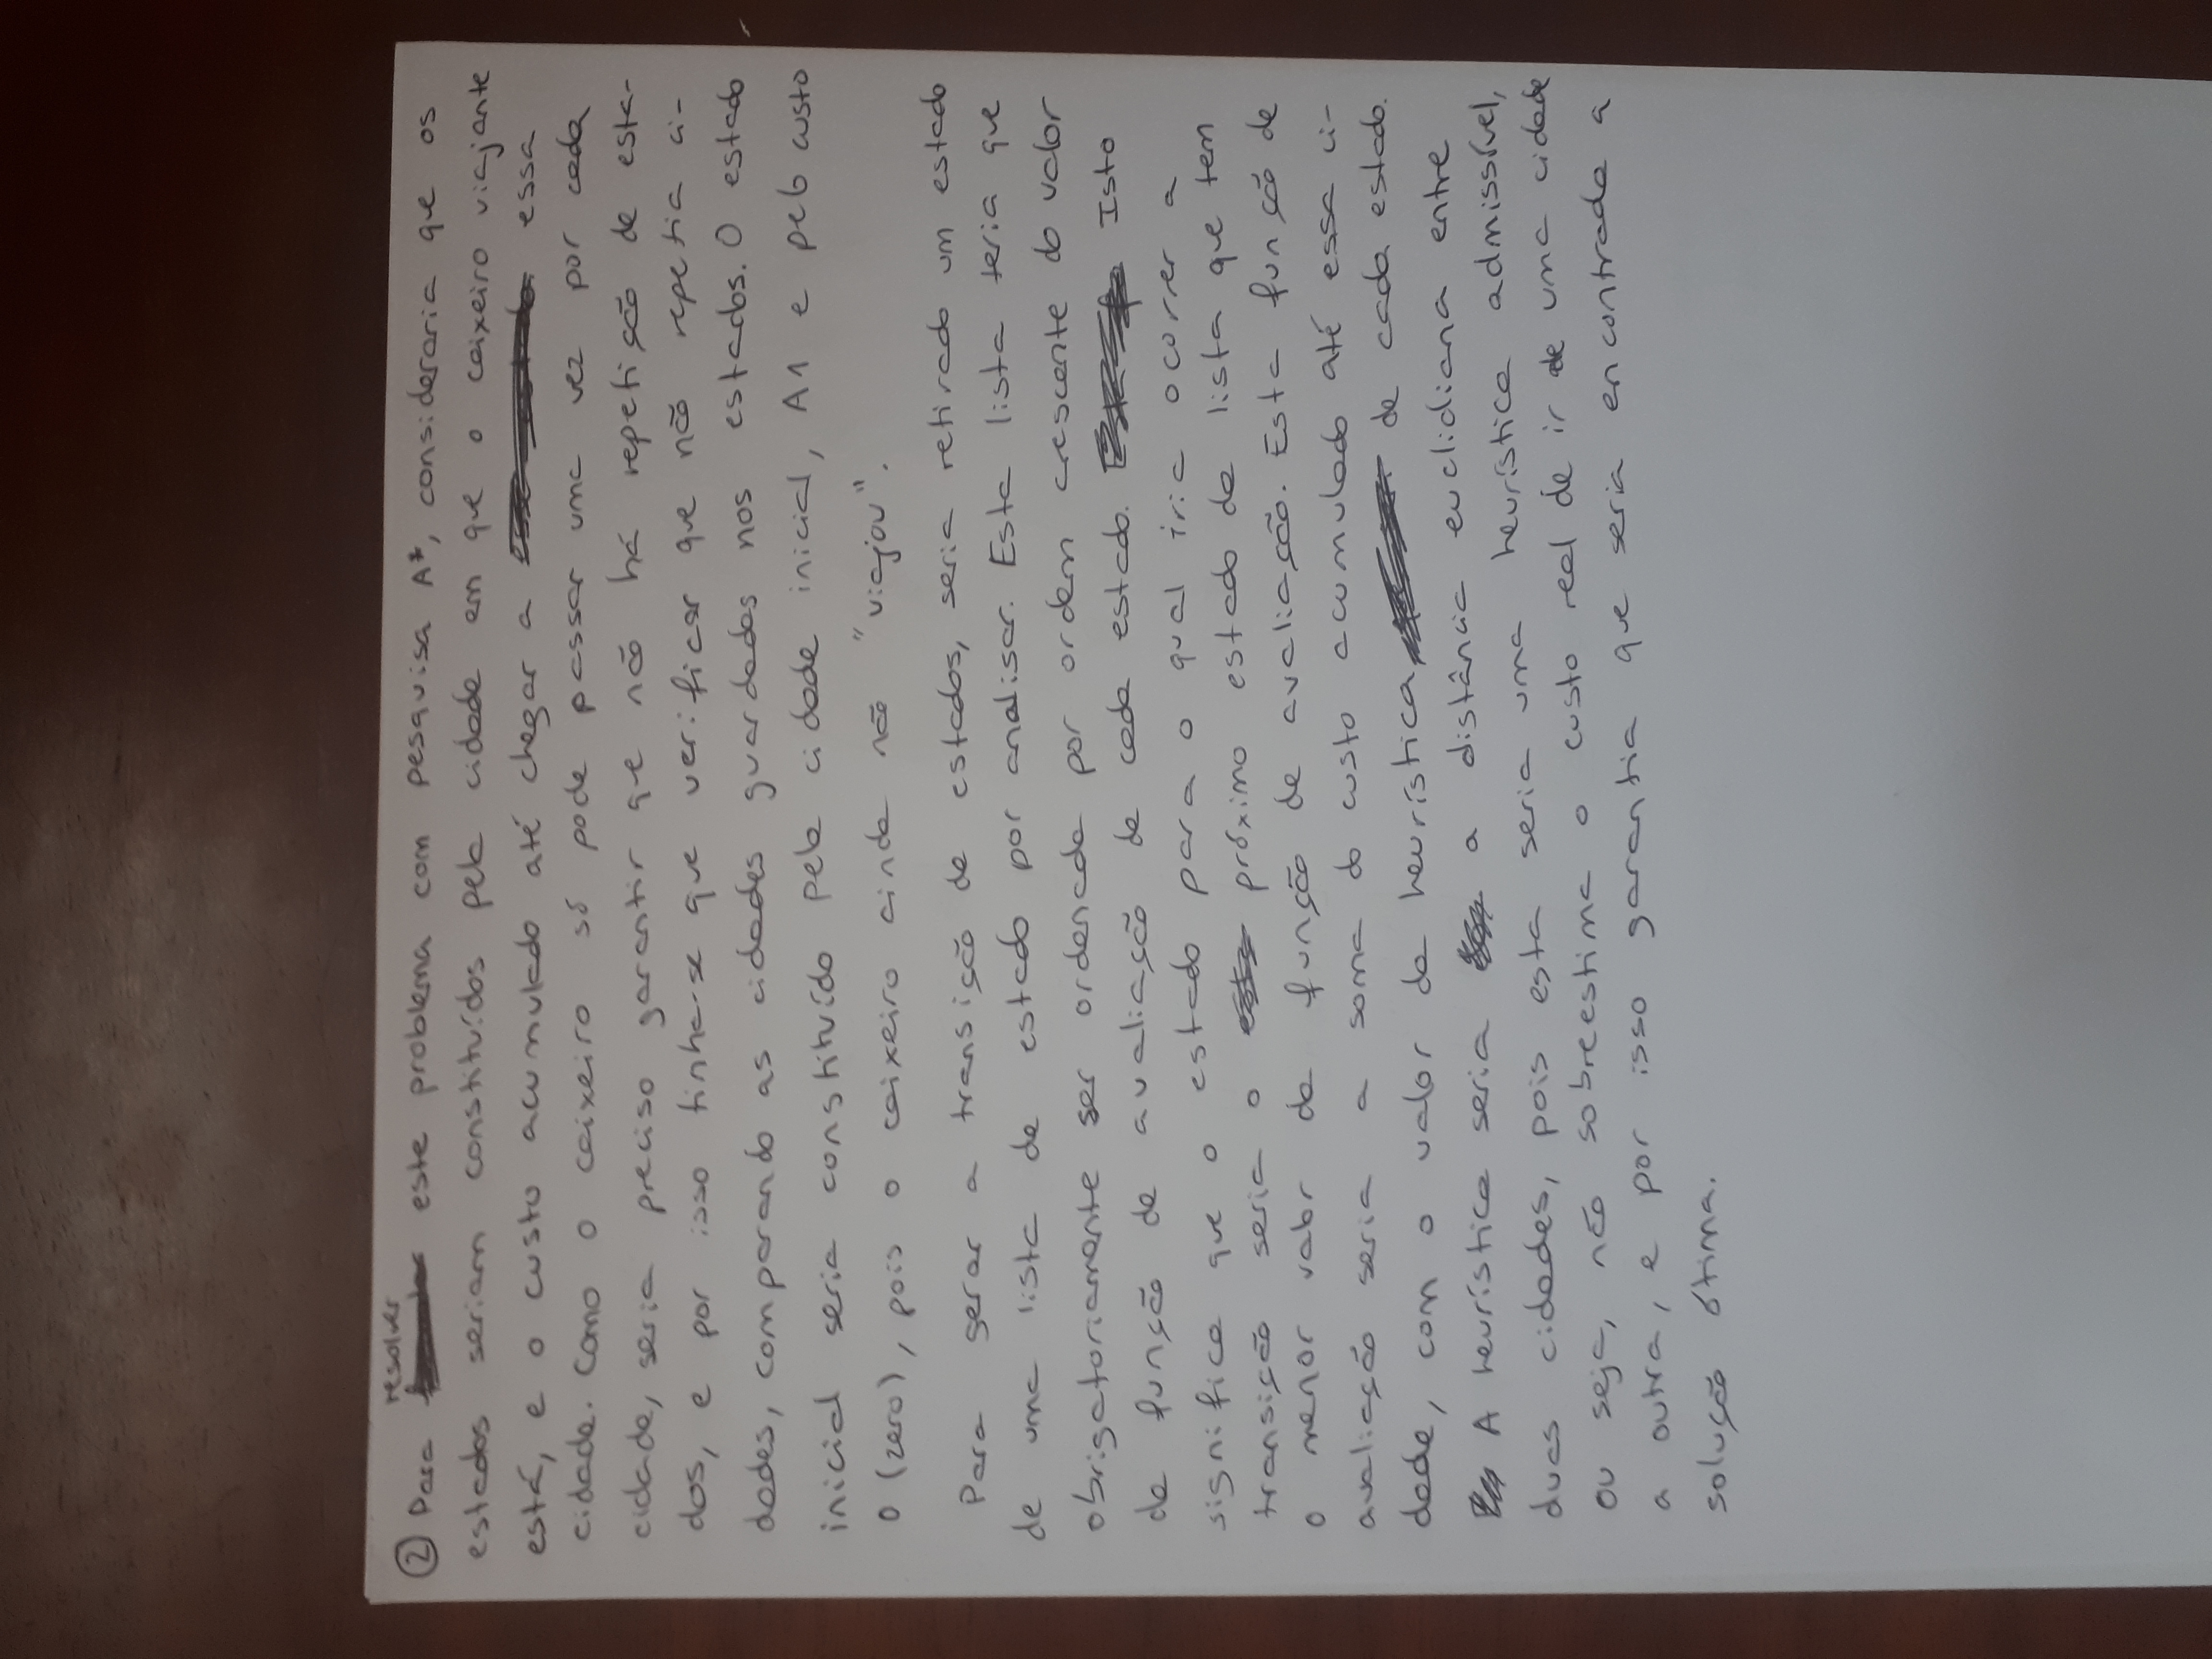 resolver
② Para este problema com pesquisa A*, consideraria que os
estados seriam constituídos pela cidade em que o caixeiro viajante
está, e o custo acumulado até chegar a essa
cidade. Como o caixeiro só pode passar uma vez por cada
cidade, seria preciso garantir que não há repetição de esta-
dos, e por isso tinha-se que verificar que não repetia ci-
dades, comparando as cidades guardadas nos estados. O estado
inicial seria constituído pela cidade inicial, A1 e pelo custo
0 (zero), pois o caixeiro ainda não "viajou".
Para gerar a transição de estados, seria retirado um estado
de uma lista de estado por analisar. Esta lista teria que
obrigatoriamente ser ordenada por ordem crescente do valor
da função de avaliação de cada estado. Isto
significa que o estado para o qual iria ocorrer a
transição seria o próximo estado da lista que tem
o menor valor da função de avaliação. Esta função de
avaliação seria a soma do custo acumulado até essa ci-
dade, com o valor da heurística de cada estado.
A heurística seria a distância euclidiana entre
duas cidades, pois esta seria uma heurística admissível,
ou seja, não sobreestima o custo real de ir de uma cidade
a outra, e por isso garantia que seria encontrada a
solução ótima.